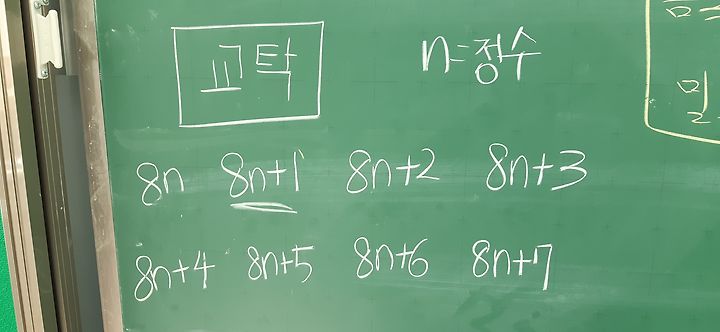 교탁
n=정수
8n 8n+1 8n+2 8n+3
8n+4 8n+5 8n+6 8n+7